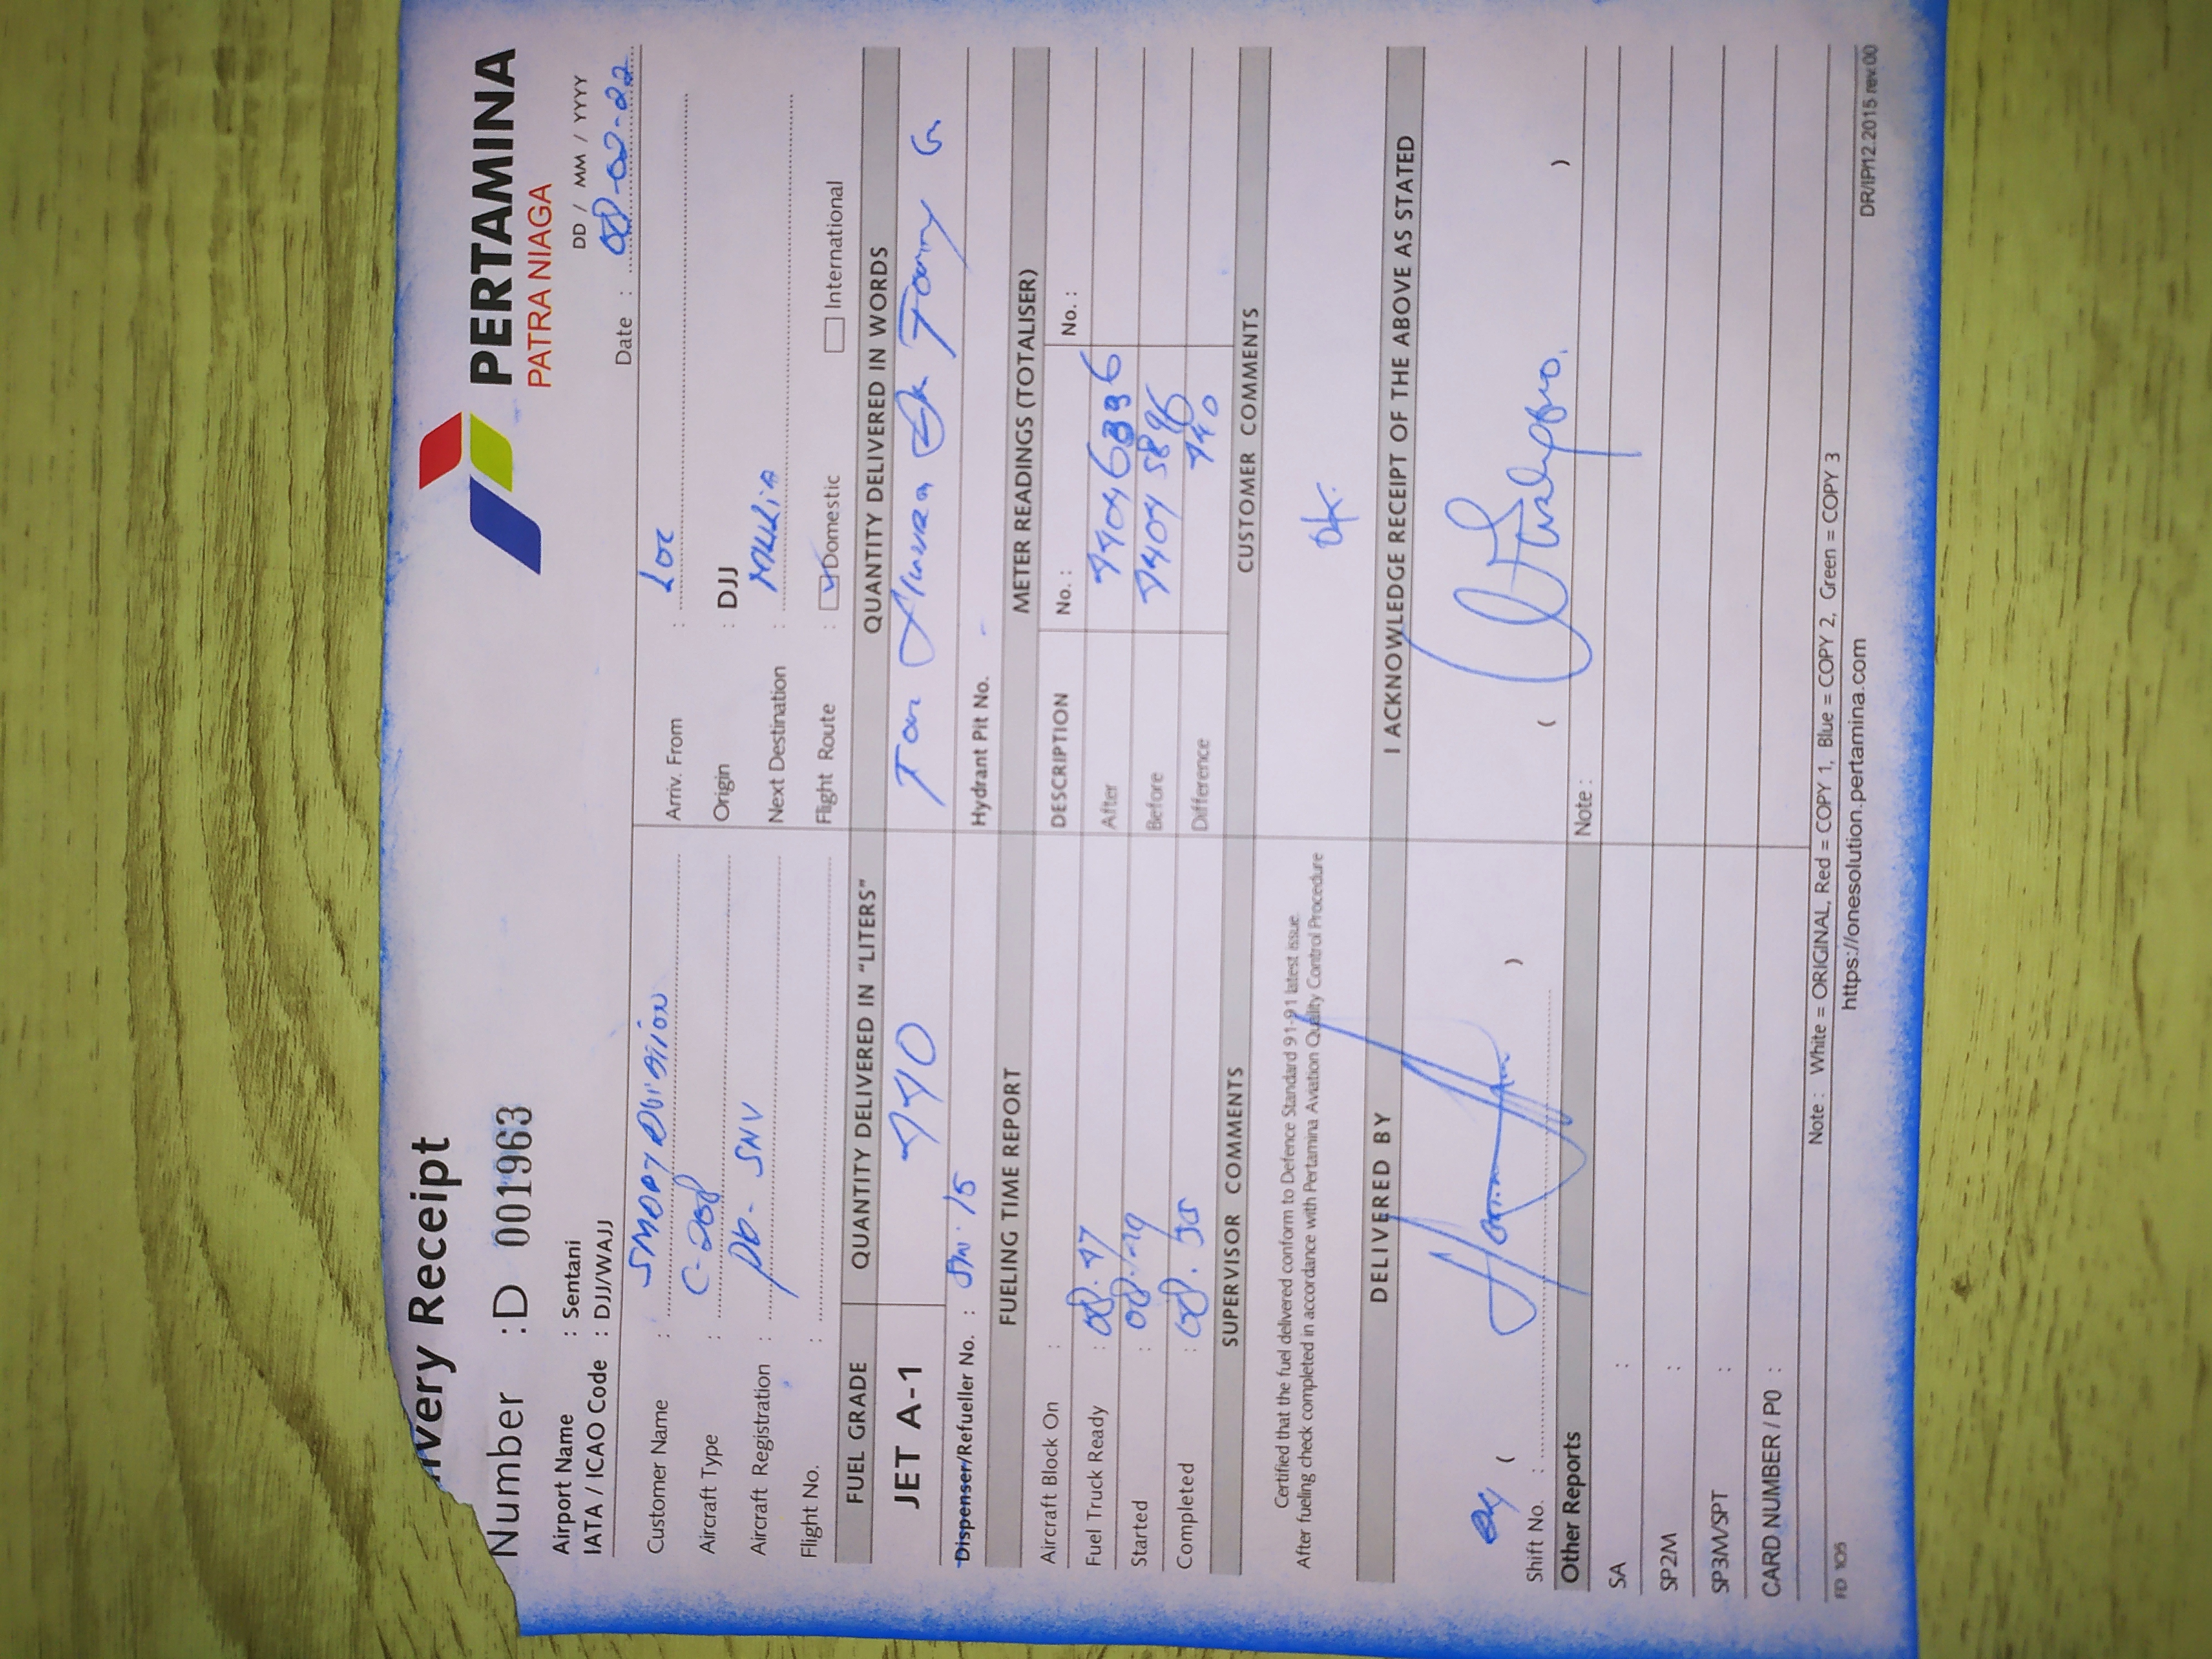 PERTAMINA
PATRA NIAGA
ivery Receipt
Number : D 001963
DD / MM / YYYY
Airport Name : Sentani
IATA / ICAO Code : DJJ/WAJJ
Date : 08-02-22
Customer Name : SMART AVIATION
Arriv. From : Loc
Aircraft Type : C-208
Origin : DJJ
Aircraft Registration : PK-SNV
Next Destination : MULIA
Flight No. :
Flight Route : Domestic International
FUEL GRADE QUANTITY DELIVERED IN "LITERS" QUANTITY DELIVERED IN WORDS
JET A-1
Dispenser/Refueller No. :
Hydrant Pit No. -
FUELING TIME REPORT METER READINGS (TOTALISER)
Aircraft Block On :
DESCRIPTION No. : No. :
Fuel Truck Ready : 08.47
After
Started : 08.49
Before
Completed :
Difference
SUPERVISOR COMMENTS CUSTOMER COMMENTS
Certified that the fuel delivered conform to Defence Standard 91-91 latest issue.
After fueling check completed in accordance with Pertamina Aviation Quality Control Procedure
Ok.
DELIVERED BY I ACKNOWLEDGE RECEIPT OF THE ABOVE AS STATED
( ) ( )
Shift No. :
Other Reports Note :
SA :
SP2M :
SP3M/SPT :
CARD NUMBER / PO :
Note : White = ORIGINAL, Red = COPY 1, Blue = COPY 2, Green = COPY 3
https://onesolution.pertamina.com
FD 105
DR/IP/12.2015 rev.00